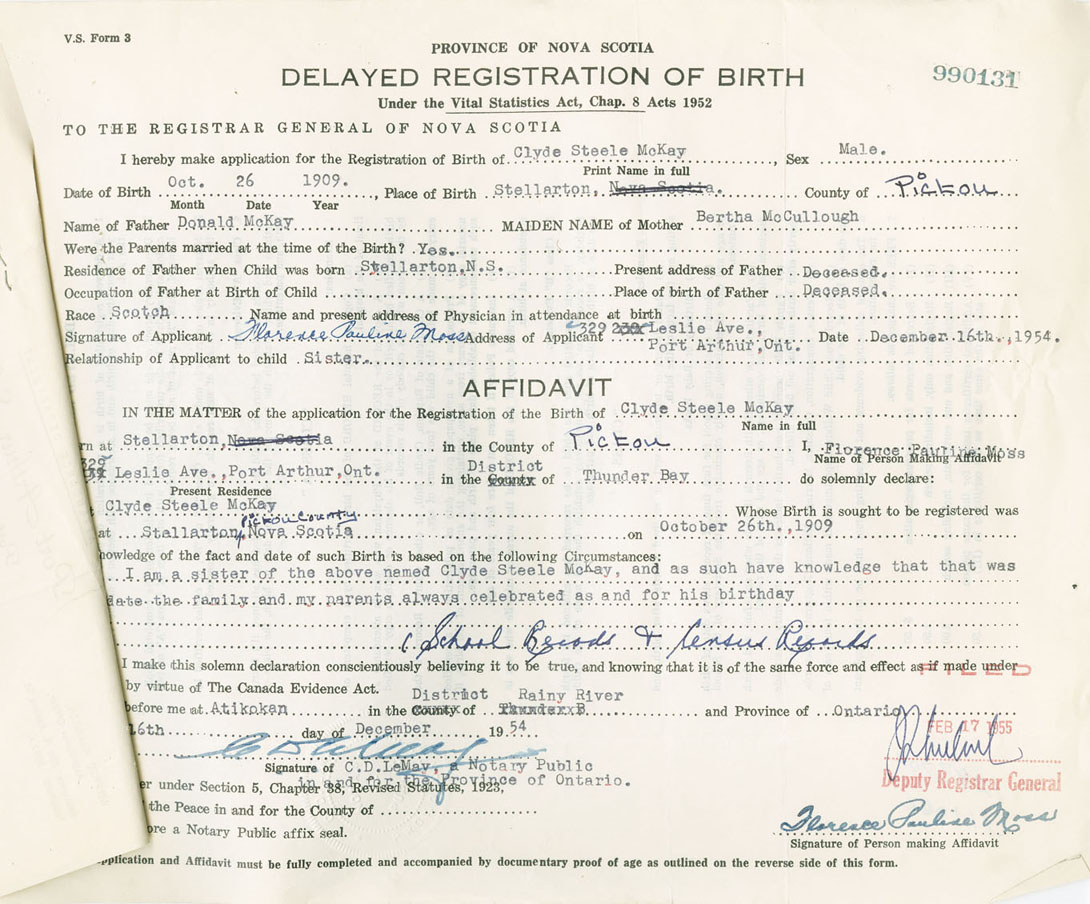 V.S. Form 3
PROVINCE OF NOVA SCOTIA
DELAYED REGISTRATION OF BIRTH
990131
Under the Vital Statistics Act, Chap. 8 Acts 1952
TO THE REGISTRAR GENERAL OF NOVA SCOTIA
I hereby make application for the Registration of Birth of Clyde Steele McKay, Sex Male.
Print Name in full
Date of Birth Oct. 26 1909., Place of Birth Stellarton, Nova Scotia. County of Pictou
Month Date Year
Name of Father Donald McKay MAIDEN NAME of Mother Bertha McCullough
Were the Parents married at the time of the Birth? Yes.
Residence of Father when Child was born Stellarton, N.S. Present address of Father Deceased.
Occupation of Father at Birth of Child Place of birth of Father Deceased.
Race Scotch Name and present address of Physician in attendance at birth
Signature of Applicant Florence Pauline Moss Address of Applicant 329 239 Leslie Ave., Date December 16th., 1954.
Port Arthur, Ont.
Relationship of Applicant to child Sister.
AFFIDAVIT
IN THE MATTER of the application for the Registration of the Birth of Clyde Steele McKay
Name in full
rn at Stellarton, Nova Scotia in the County of Pictou I, Florence Pauline Moss
Name of Person Making Affidavit
329 Leslie Ave., Port Arthur, Ont. in the County District of Thunder Bay do solemnly declare:
Present Residence
Clyde Steele McKay Whose Birth is sought to be registered was
Pictou County
at Stellarton, Nova Scotia on October 26th., 1909
nowledge of the fact and date of such Birth is based on the following Circumstances:
I am a sister of the above named Clyde Steele McKay, and as such have knowledge that that was
date the family and my parents always celebrated as and for his birthday
School Records & Census Records
I make this solemn declaration conscientiously believing it to be true, and knowing that it is of the same force and effect as if made under
FILED
by virtue of The Canada Evidence Act.
before me at Atikokan in the County District of Thunder B Rainy River and Province of Ontario
16th day of December 19 54
FEB 17 1955
Signature of C.D. LeMay, a Notary Public
in and for the Province of Ontario.
Deputy Registrar General
er under Section 5, Chapter 38, Revised Statutes, 1923,
the Peace in and for the County of
Florence Pauline Moss
ore a Notary Public affix seal.
Signature of Person making Affidavit
pplication and Affidavit must be fully completed and accompanied by documentary proof of age as outlined on the reverse side of this form.